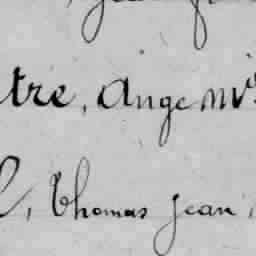 tre, Ange
, Thomas Jean,